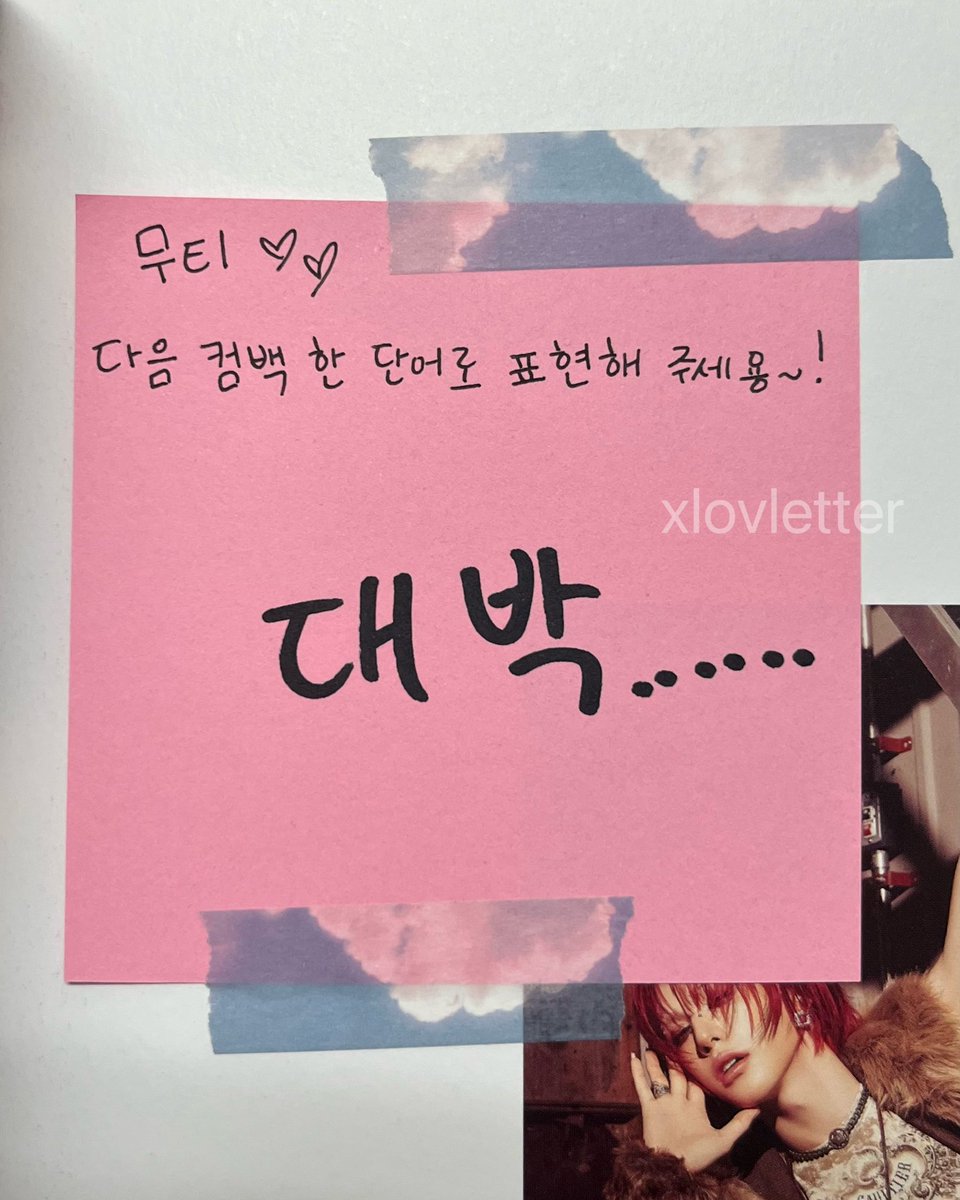 무티 ♡♡
다음 컴백 한 단어로 표현해 주세용~!
xlovletter
대박......